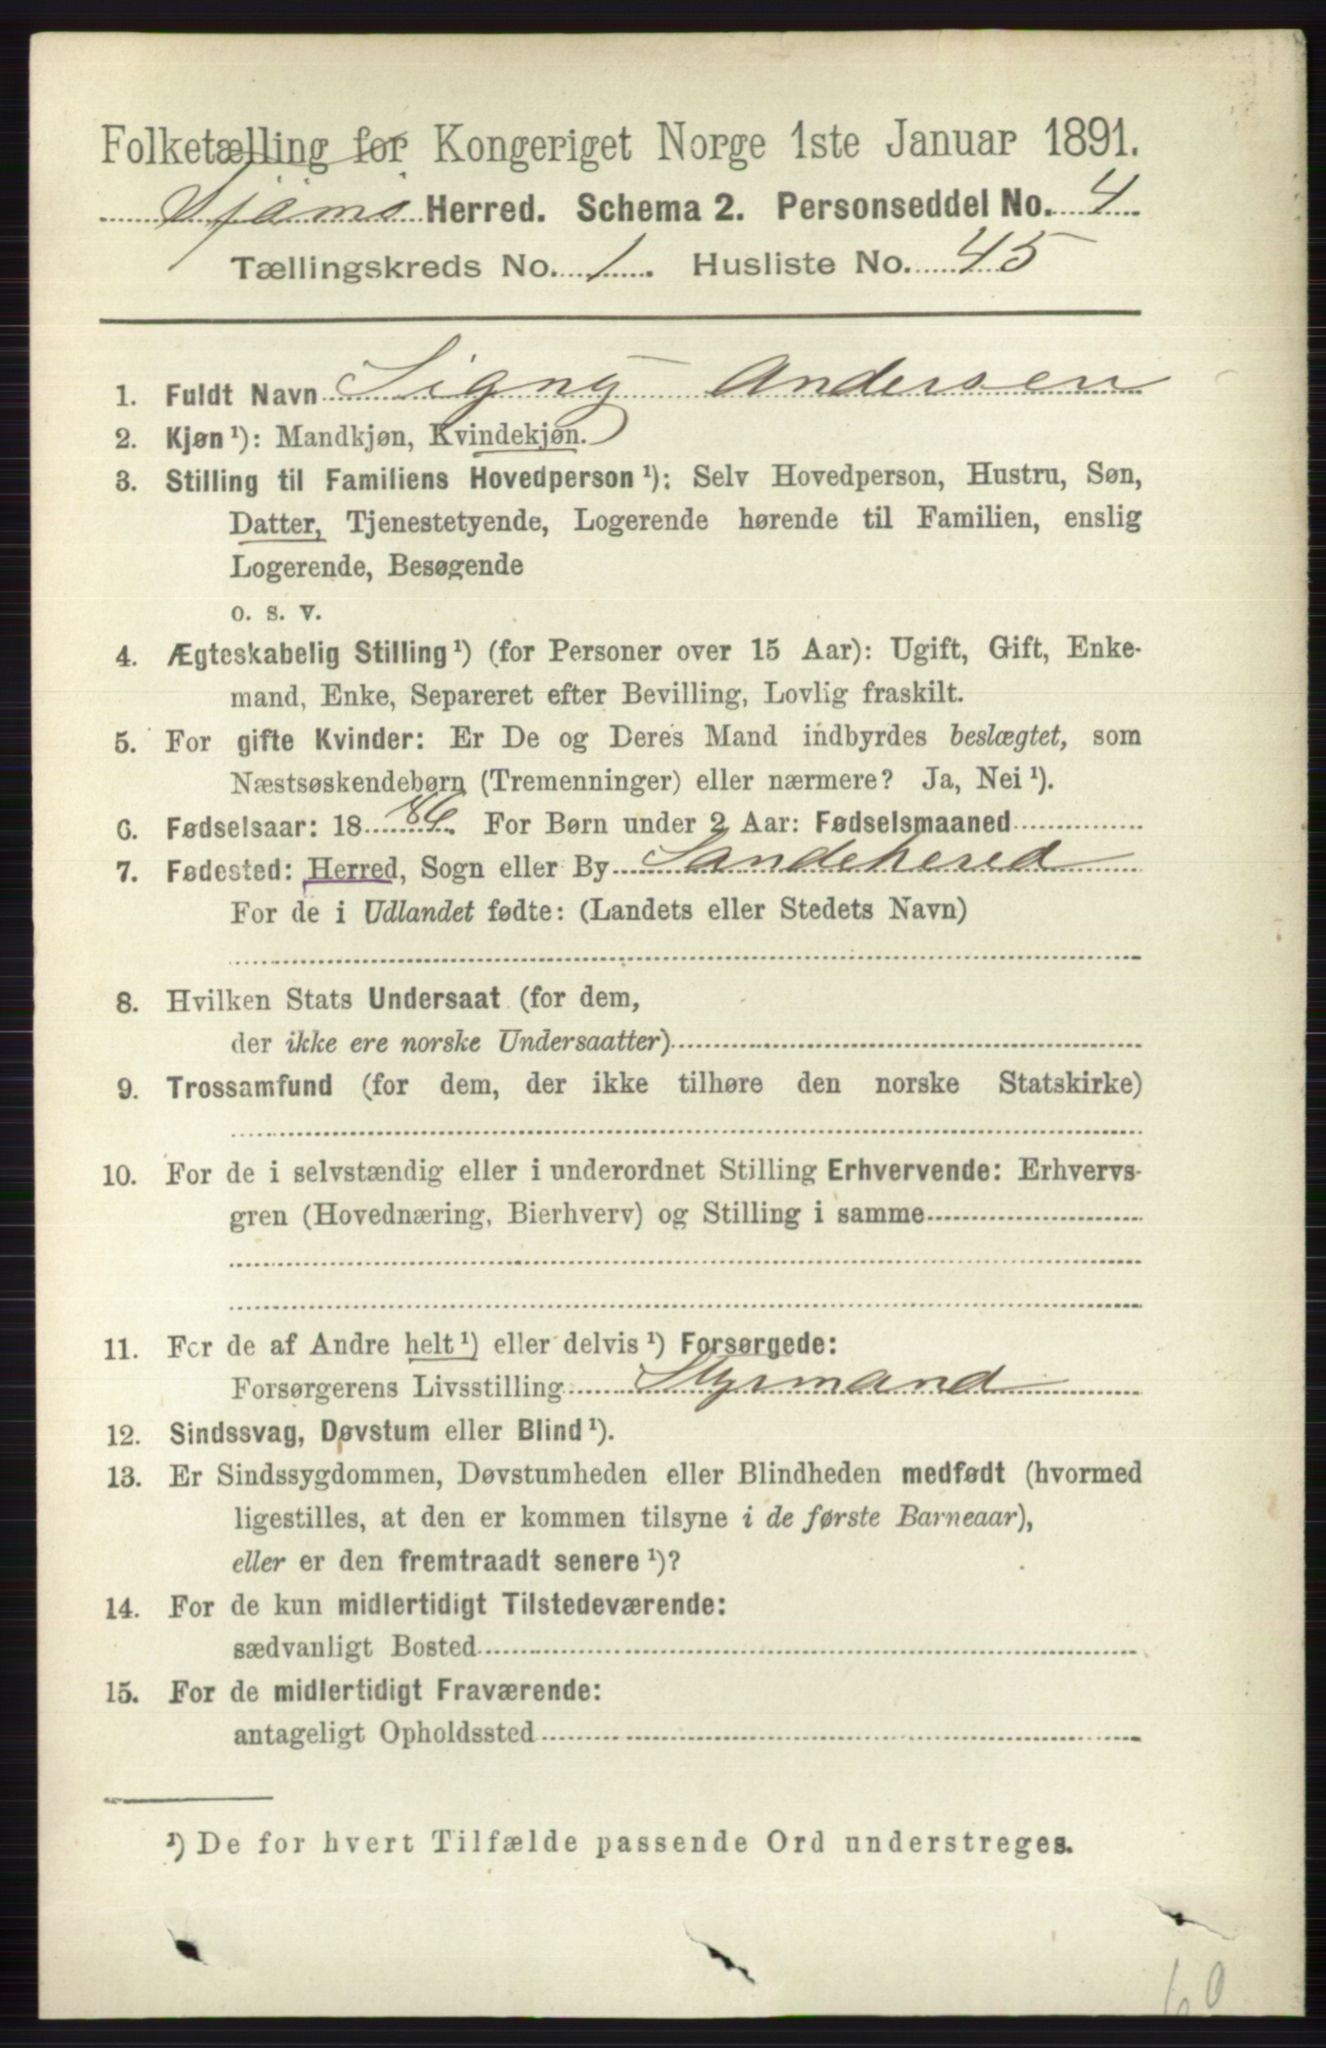 Folketælling for Kongeriget Norge 1ste Januar 1891.
Tjømø Herred. Schema 2. Personseddel No. 4
Tællingskreds No. 1. Husliste No. 45
1. Fuldt Navn Signy Andersen
2. Kjøn ¹): Mandkjøn, Kvindekjøn.
3. Stilling til Familiens Hovedperson ¹): Selv Hovedperson, Hustru, Søn,
Datter, Tjenestetyende, Logerende hørende til Familien, enslig
Logerende, Besøgende
o. s. v.
4. Ægteskabelig Stilling ¹) (for Personer over 15 Aar): Ugift, Gift, Enke-
mand, Enke, Separeret efter Bevilling, Lovlig fraskilt.
5. For gifte Kvinder: Er De og Deres Mand indbyrdes beslægtet, som
Næstsøskendebørn (Tremenninger) eller nærmere? Ja, Nei ¹).
6. Fødselsaar: 18 86. For Børn under 2 Aar: Fødselsmaaned
7. Fødested: Herred, Sogn eller By Sandehered
For de i Udlandet fødte: (Landets eller Stedets Navn)
8. Hvilken Stats Undersaat (for dem,
der ikke ere norske Undersaatter)
9. Trossamfund (for dem, der ikke tilhøre den norske Statskirke)
10. For de i selvstændig eller i underordnet Stilling Erhvervende: Erhvervs-
gren (Hovednæring, Bierhverv) og Stilling i samme
11. For de af Andre helt ¹) eller delvis ¹) Forsørgede:
Forsørgerens Livsstilling Styrmand
12. Sindssvag, Døvstum eller Blind ¹).
13. Er Sindssygdommen, Døvstumheden eller Blindheden medfødt (hvormed
ligestilles, at den er kommen tilsyne i de første Barneaar),
eller er den fremtraadt senere ¹)?
14. For de kun midlertidigt Tilstedeværende:
sædvanligt Bosted
15. For de midlertidigt Fraværende:
antageligt Opholdssted
¹) De for hvert Tilfælde passende Ord understreges.
60